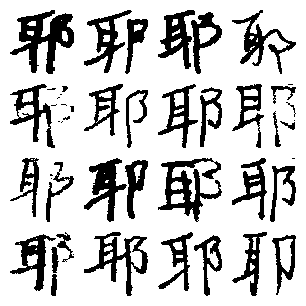 耶耶耶耶
耶耶耶耶
耶耶耶耶
耶耶耶耶